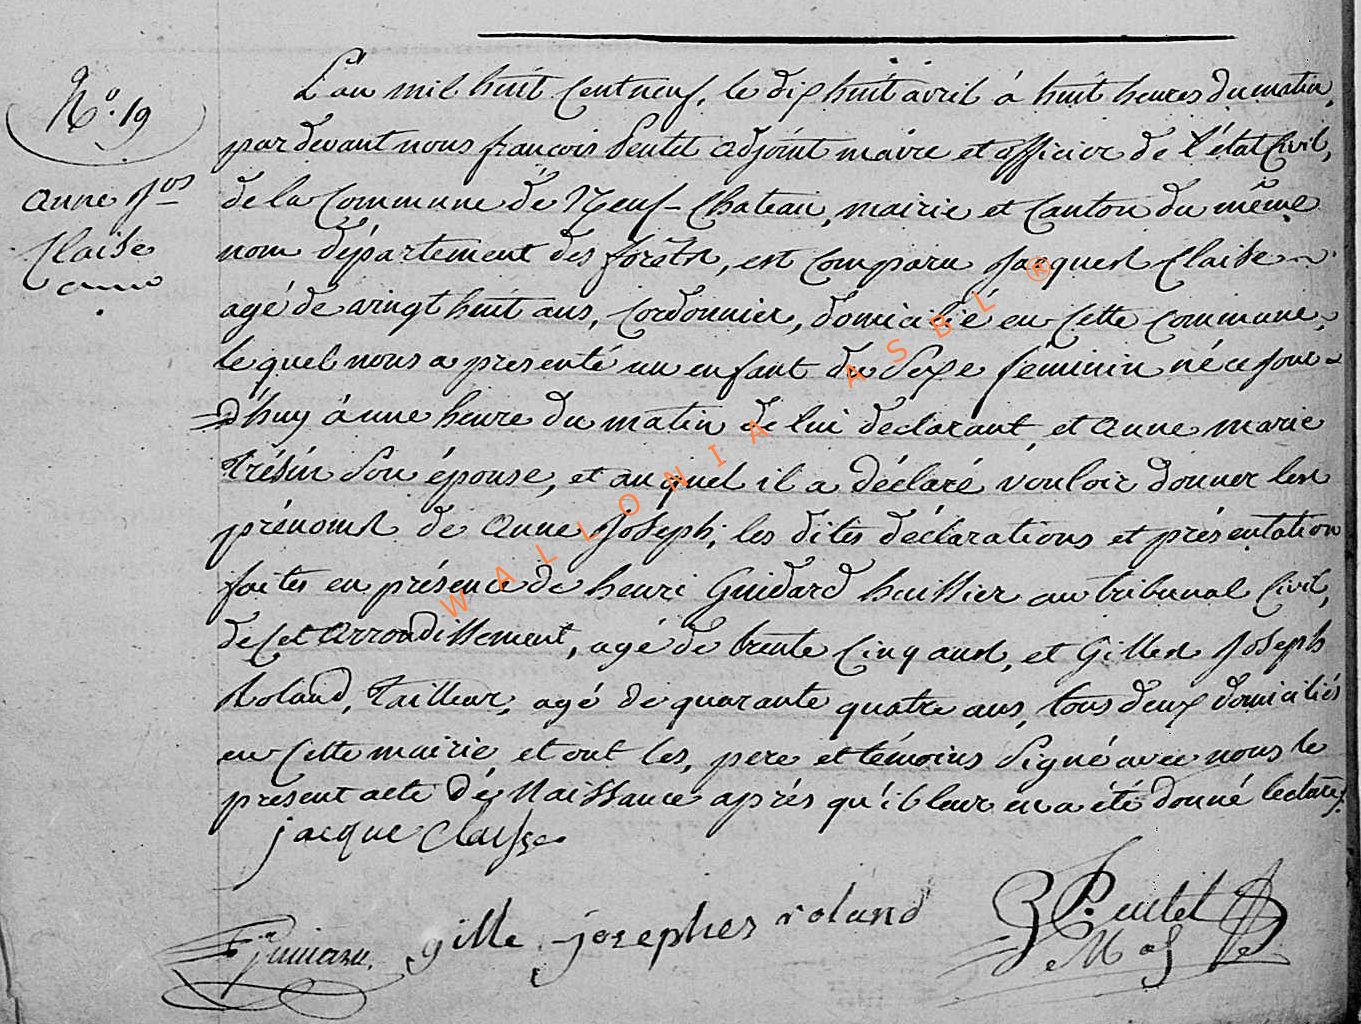 N.º 19
anne Jos
Claise
L'an mil huit cent neuf, le dix huit avril à huit heures du matin,
par devant nous françois Pentel adjoint maire et officier de l'état Civil,
de la Commune de Neuf-Chateau, mairie et Canton du même
nom département des forêts, est comparu Jacques Claise
agé de vingt huit ans, Cordonnier, domicilié en Cette Commune,
le quel nous a presenté un enfant du sexe féminin né ce jour-
d'huy à une heure du matin de lui déclarant, et anne marie
son épouse, et au quel il a déclaré vouloir donner les
prénoms de anne Joseph; les dites déclarations et présentation
faites en présence de henri Guidard huissier au tribunal Civil,
de Cet arrondissement, agé de trente Cinq ans, et Gilles Joseph
Roland, Tailleur, agé de quarante quatre ans, tous deux domiciliés
en Cette mairie et ont les, pere et témoins signé avec nous le
présent acte de Naissance après qu'il leur en a été donné lecture.
jacque Claisse
gille josephes roland
WALLONIA ASBL ®